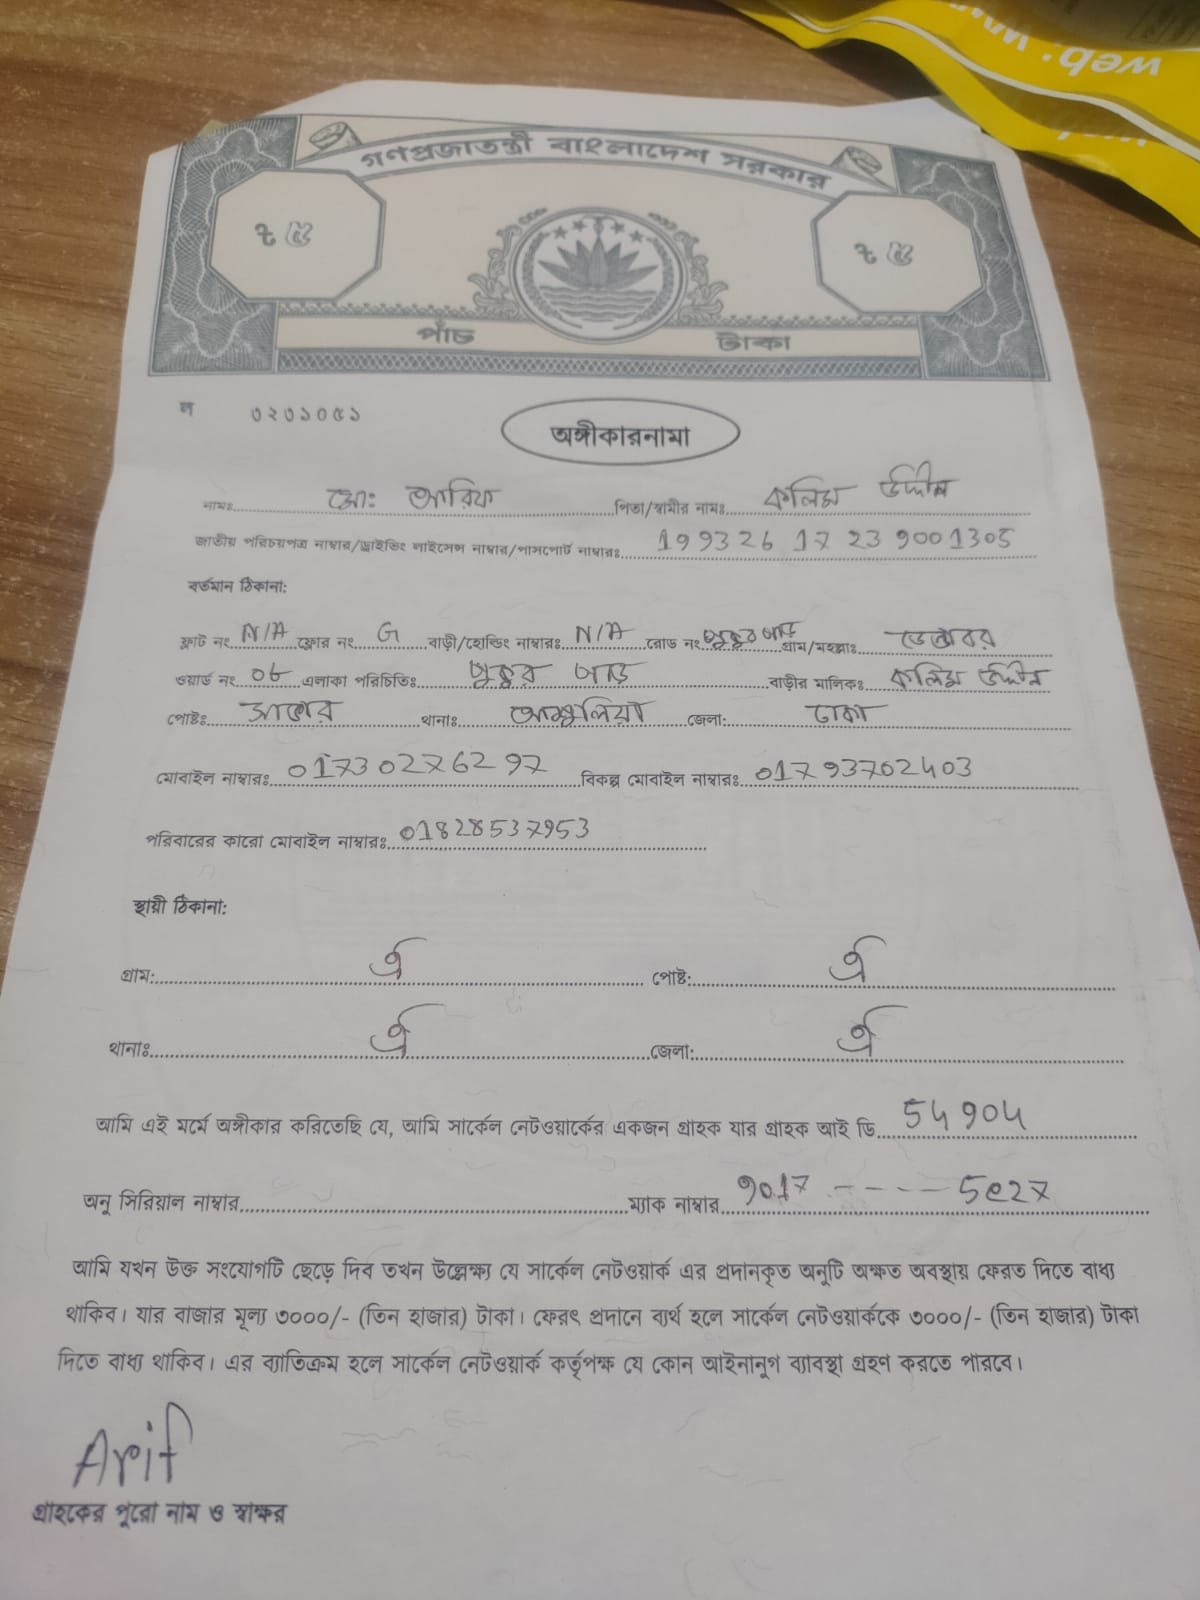 web: www
গণপ্রজাতন্ত্রী বাংলাদেশ সরকার
৳ ৫ ৳ ৫
পাঁচ টাকা
ল ৩২৩১০৫১
অঙ্গীকারনামা
নামঃ মোঃ আরিফ পিতা/স্বামীর নামঃ কলিম উদ্দীন
জাতীয় পরিচয়পত্র নাম্বার/ড্রাইভিং লাইসেন্স নাম্বার/পাসপোর্ট নাম্বারঃ 19932617239001305
বর্তমান ঠিকানা:
ফ্লাট নং N/A ফ্লোর নং G বাড়ী/হোল্ডিং নাম্বারঃ N/A রোড নং পুকুর পাড় গ্রাম/মহল্লাঃ
ওয়ার্ড নং 06 এলাকা পরিচিতিঃ পুকুর পাড় বাড়ীর মালিকঃ কলিম উদ্দীন
পোষ্টঃ সাভার থানাঃ আশুলিয়া জেলা: ঢাকা
মোবাইল নাম্বারঃ 01730276297 বিকল্প মোবাইল নাম্বারঃ 01793702403
পরিবারের কারো মোবাইল নাম্বারঃ 01828537953
স্থায়ী ঠিকানা:
গ্রাম: ঐ পোষ্ট: ঐ
থানাঃ ঐ জেলা: ঐ
আমি এই মর্মে অঙ্গীকার করিতেছি যে, আমি সার্কেল নেটওয়ার্কের একজন গ্রাহক যার গ্রাহক আই ডি 54904
অনু সিরিয়াল নাম্বার ম্যাক নাম্বার 9017 ---- 5e27
আমি যখন উক্ত সংযোগটি ছেড়ে দিব তখন উল্লেক্ষ্য যে সার্কেল নেটওয়ার্ক এর প্রদানকৃত অনুটি অক্ষত অবস্থায় ফেরত দিতে বাধ্য
থাকিব। যার বাজার মূল্য ৩০০০/- (তিন হাজার) টাকা। ফেরৎ প্রদানে ব্যর্থ হলে সার্কেল নেটওয়ার্ককে ৩০০০/- (তিন হাজার) টাকা
দিতে বাধ্য থাকিব। এর ব্যাতিক্রম হলে সার্কেল নেটওয়ার্ক কর্তৃপক্ষ যে কোন আইনানুগ ব্যাবস্থা গ্রহণ করতে পারবে।
Arif
গ্রাহকের পুরো নাম ও স্বাক্ষর